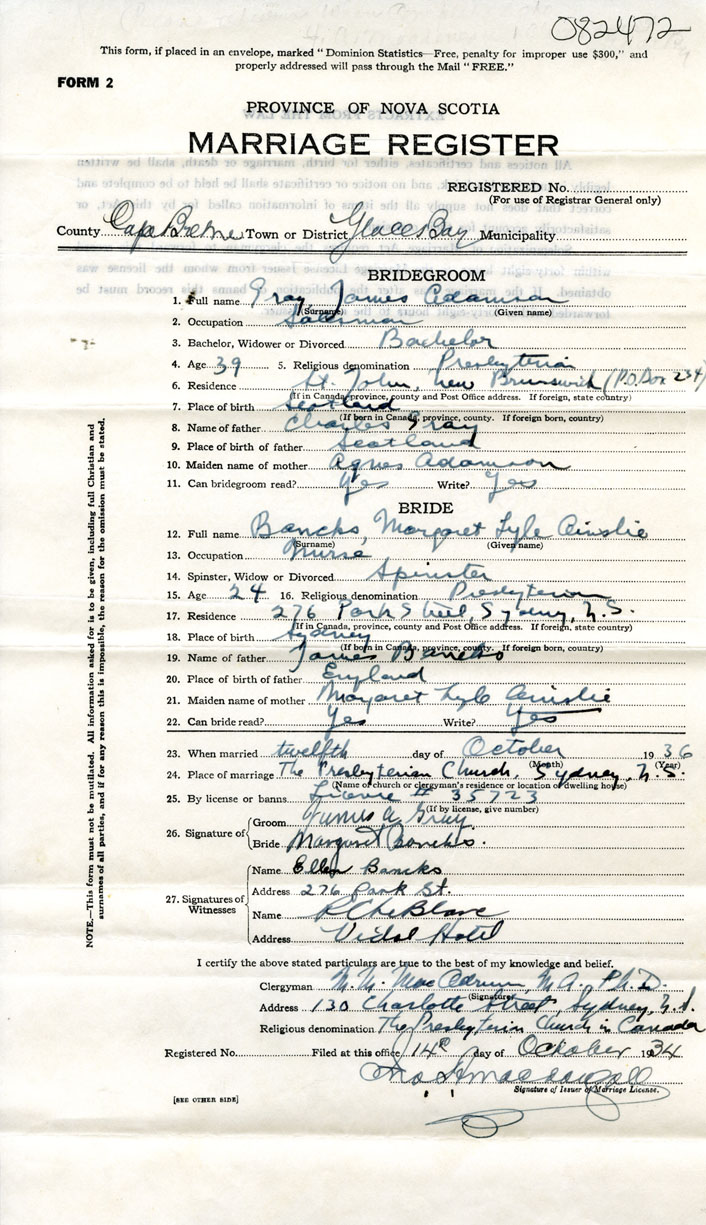 082472
This form, if placed in an envelope, marked "Dominion Statistics—Free, penalty for improper use $300," and
properly addressed will pass through the Mail "FREE."
FORM 2
PROVINCE OF NOVA SCOTIA
MARRIAGE REGISTER
REGISTERED No.
(For use of Registrar General only)
County Cape Breton Town or District Glace Bay Municipality
BRIDEGROOM
1. Full name Gray, James Adamson
(Surname) (Given name)
2. Occupation Salesman
3. Bachelor, Widower or Divorced Bachelor
4. Age 39 5. Religious denomination Presbyterian
6. Residence St. John, New Brunswick (P.O. Box 234)
(If in Canada, province, county and Post Office address. If foreign, state country)
7. Place of birth Scotland
(If born in Canada, province, county. If foreign born, country)
8. Name of father Charles Gray
9. Place of birth of father Scotland
10. Maiden name of mother Agnes Adamson
11. Can bridegroom read? Yes Write? Yes
BRIDE
12. Full name Bancks, Margaret Lyle Ainslie
(Surname) (Given name)
13. Occupation Nurse
14. Spinster, Widow or Divorced Spinster
15. Age 24 16. Religious denomination Presbyterian
17. Residence 276 Park Street, Sydney, N.S.
(If in Canada, province, county and Post Office address. If foreign, state country)
18. Place of birth Sydney
(If born in Canada, province, county. If foreign born, country)
19. Name of father James Bancks
20. Place of birth of father England
21. Maiden name of mother Margaret Lyle Ainslie
22. Can bride read? Yes Write? Yes
23. When married twelfth day of October 1936
(Month) (Year)
24. Place of marriage The Presbyterian Church, Sydney, N.S.
(Name of church or clergyman's residence or location of dwelling house)
25. By license or banns License # 35723
(If by license, give number)
26. Signature of
Groom James A Gray
Bride Margaret Bancks.
27. Signatures of Witnesses
Name Ellen Bancks
Address 276 Park St.
Name
Address Vidal Hotel
I certify the above stated particulars are true to the best of my knowledge and belief.
Clergyman M.A. Ph.D.
(Signature)
Address 130 Charlotte Street, Sydney, N.S.
Religious denomination The Presbyterian Church in Canada
Registered No. Filed at this office 14th day of October 1934
Signature of Issuer of Marriage License.
[SEE OTHER SIDE]
NOTE.—This form must not be mutilated. All information asked for is to be given, including full Christian and
surnames of all parties, and if for any reason this is impossible, the reason for the omission must be stated.